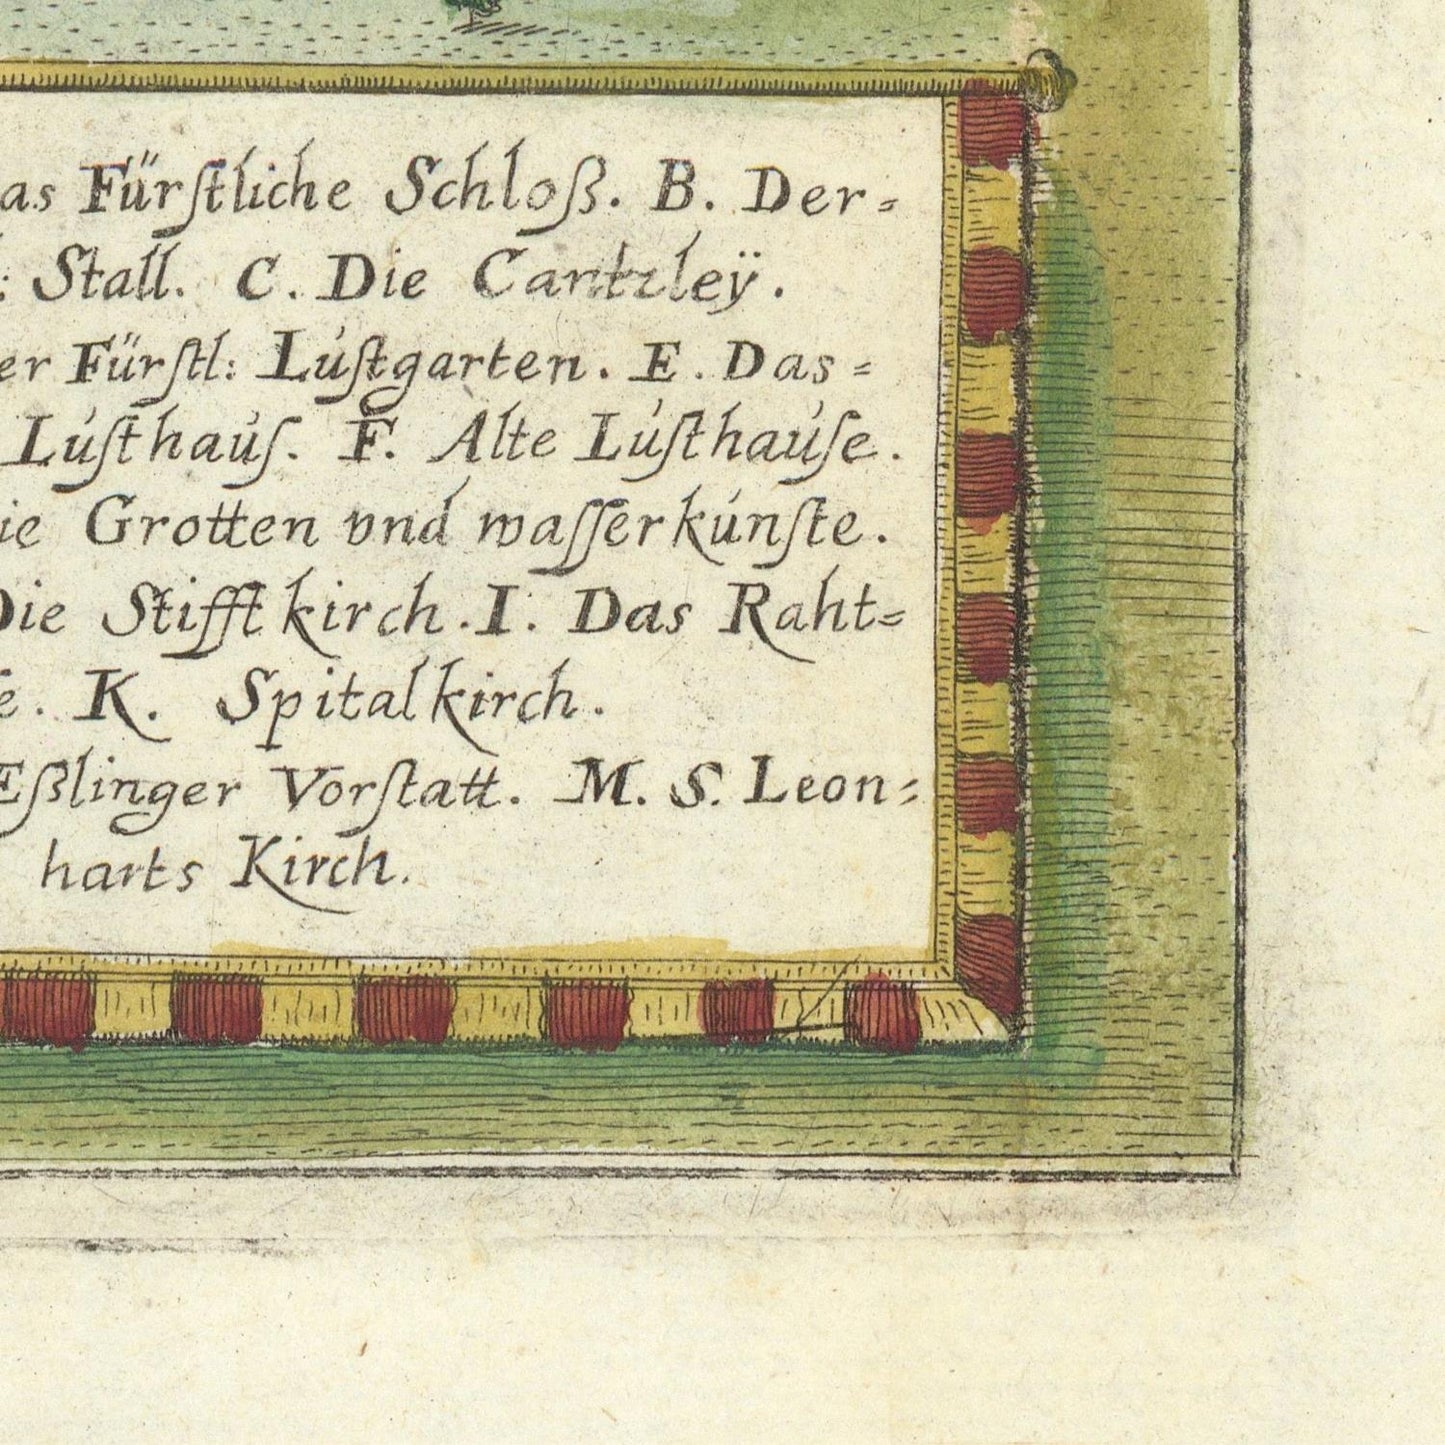 as Fürſtliche Schloß. B. Der⸗
: Stall. C. Die Cantzleÿ.
er Fürſtl: Luſtgarten. E. Das⸗
Luſthauſ. F. Alte Luſthauſe.
ie Grotten vnd waſſerkúnſte.
Die Stifftkirch. I. Das Raht⸗
e. K. Spitalkirch.
Eßlinger Vorſtatt. M. S. Leon⸗
harts Kirch.